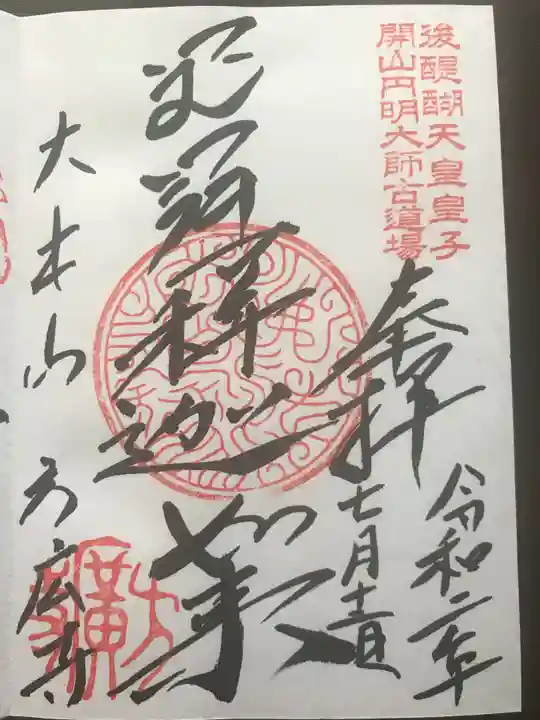 後醍醐天皇皇子
開山円明大師古道場
奉拝
令和二年
七月十二日
宝冠釋迦如来
大本山方広寺